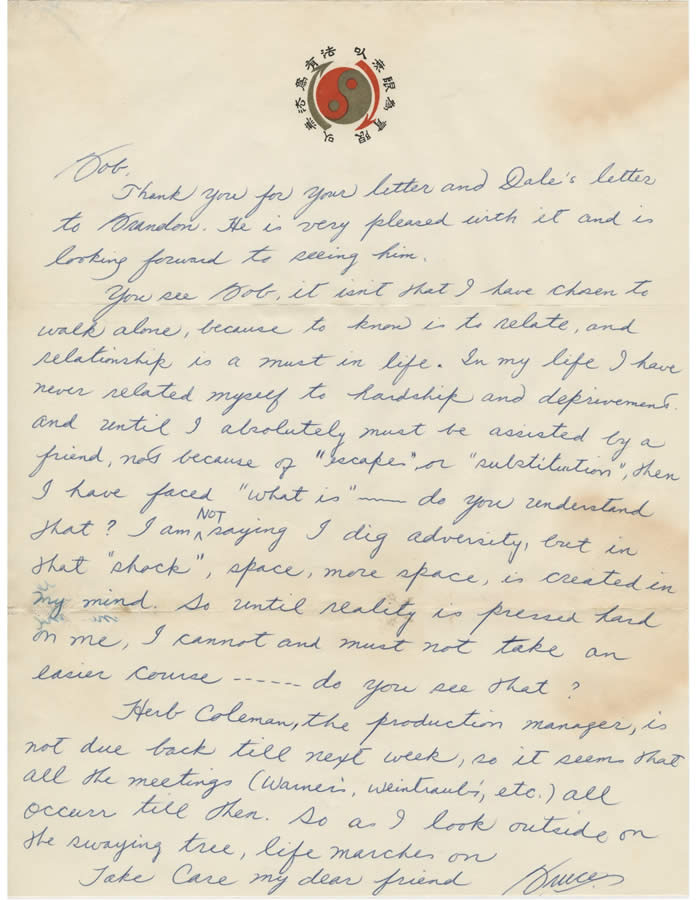 以無法為有法 以無限為有限
Bob,
Thank you for your letter and Dale's letter
to Brandon. He is very pleased with it and is
looking forward to seeing him.
You see Bob, it isn't that I have chosen to
walk alone, because to know is to relate, and
relationship is a must in life. In my life I have
never related myself to hardship and deprivements.
and until I absolutely must be assisted by a
friend, not because of "escapes", or "substituition", then
I have faced "what is" —— do you understand
that? I am NOT saying I dig adversity, but in
that "shock", space, more space, is created in
my mind. So until reality is pressed hard
on me, I cannot and must not take an
easier course ------ do you see that?
Herb Coleman, the production manager, is
not due back till next week, so it seems that
all the meetings (Warner's, weintraub's, etc.) all
occurr till then. So as I look outside on
the swaying tree, life marches on
Take Care my dear friend Bruce